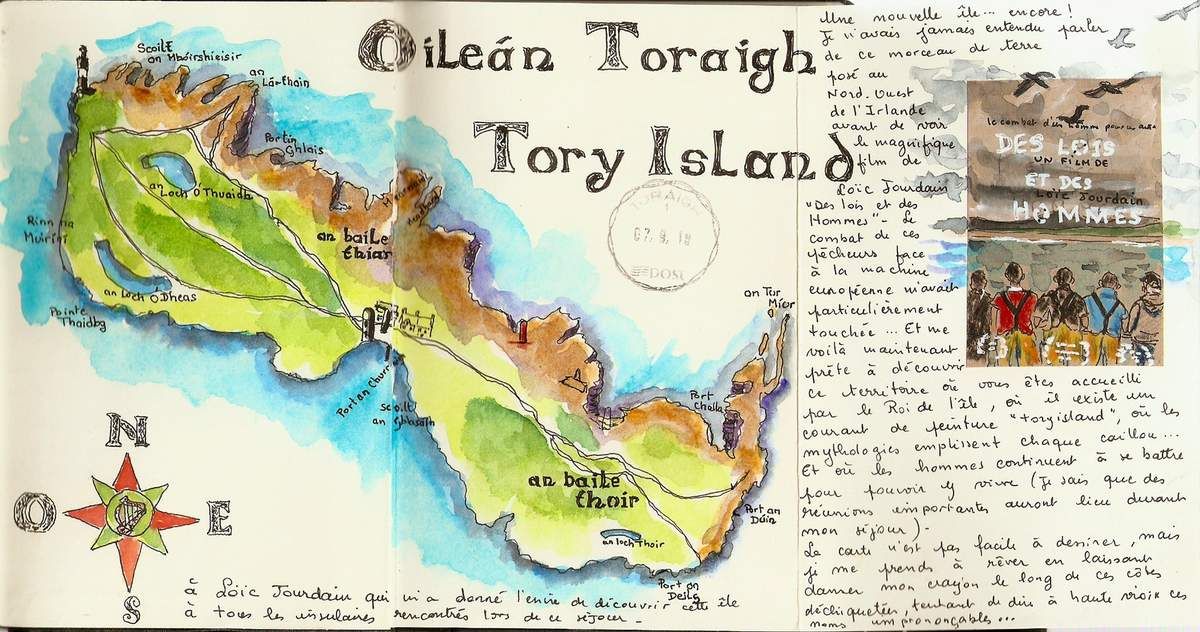 Oileán Toraigh
Tory Island
Scoilt
an Mháirshéisir
an
Lárthain
Portín
Ghlais
an
Loch Ó Thuaidh
Rinn na
Muirirí
an baile
thiar
an Loch Ó Dheas
Pointe
Thaidbg
Port an Churraigh
Scoilt
an Ghlasáin
an Tur
Mór
Port
Challa
an baile
thoir
an loch Thoir
Port an
Dúin
Port an
Deilg
TORAIGH
1
07. 9. 18
POST
N
O
E
S
à Loïc Jourdain qui m'a donné l'envie de découvrir cette île
à tous les insulaires rencontrés lors de ce séjour -
Une nouvelle île... encore !
Je n'avais jamais entendu parler
de ce morceau de terre
posé au
Nord. Ouest
de l'Irlande
avant de voir
le magnifique
film de
Loïc Jourdain
"Des lois et des
Hommes" - Le
combat de ces
pêcheurs face
à la machine
européenne m'avait
particulièrement
touchée... Et me
voilà maintenant
prête à découvrir
ce territoire où vous êtes accueilli
par le Roi de l'île, où il existe un
courant de peinture "tory island", où les
mythologies emplissent chaque caillou...
Et où les hommes continuent à se battre
pour pouvoir y vivre (Je sais que des
réunions importantes auront lieu durant
mon séjour) -
La carte n'est pas facile à dessiner, mais
je me prends à rêver en laissant
danser mon crayon le long de ces côtes
déchiquetées, tentant de dire à haute voix ces
noms imprononçables...
le combat d'un homme pour
DES LOIS
UN FILM DE
ET DES
LOÏC JOURDAIN
HOMMES